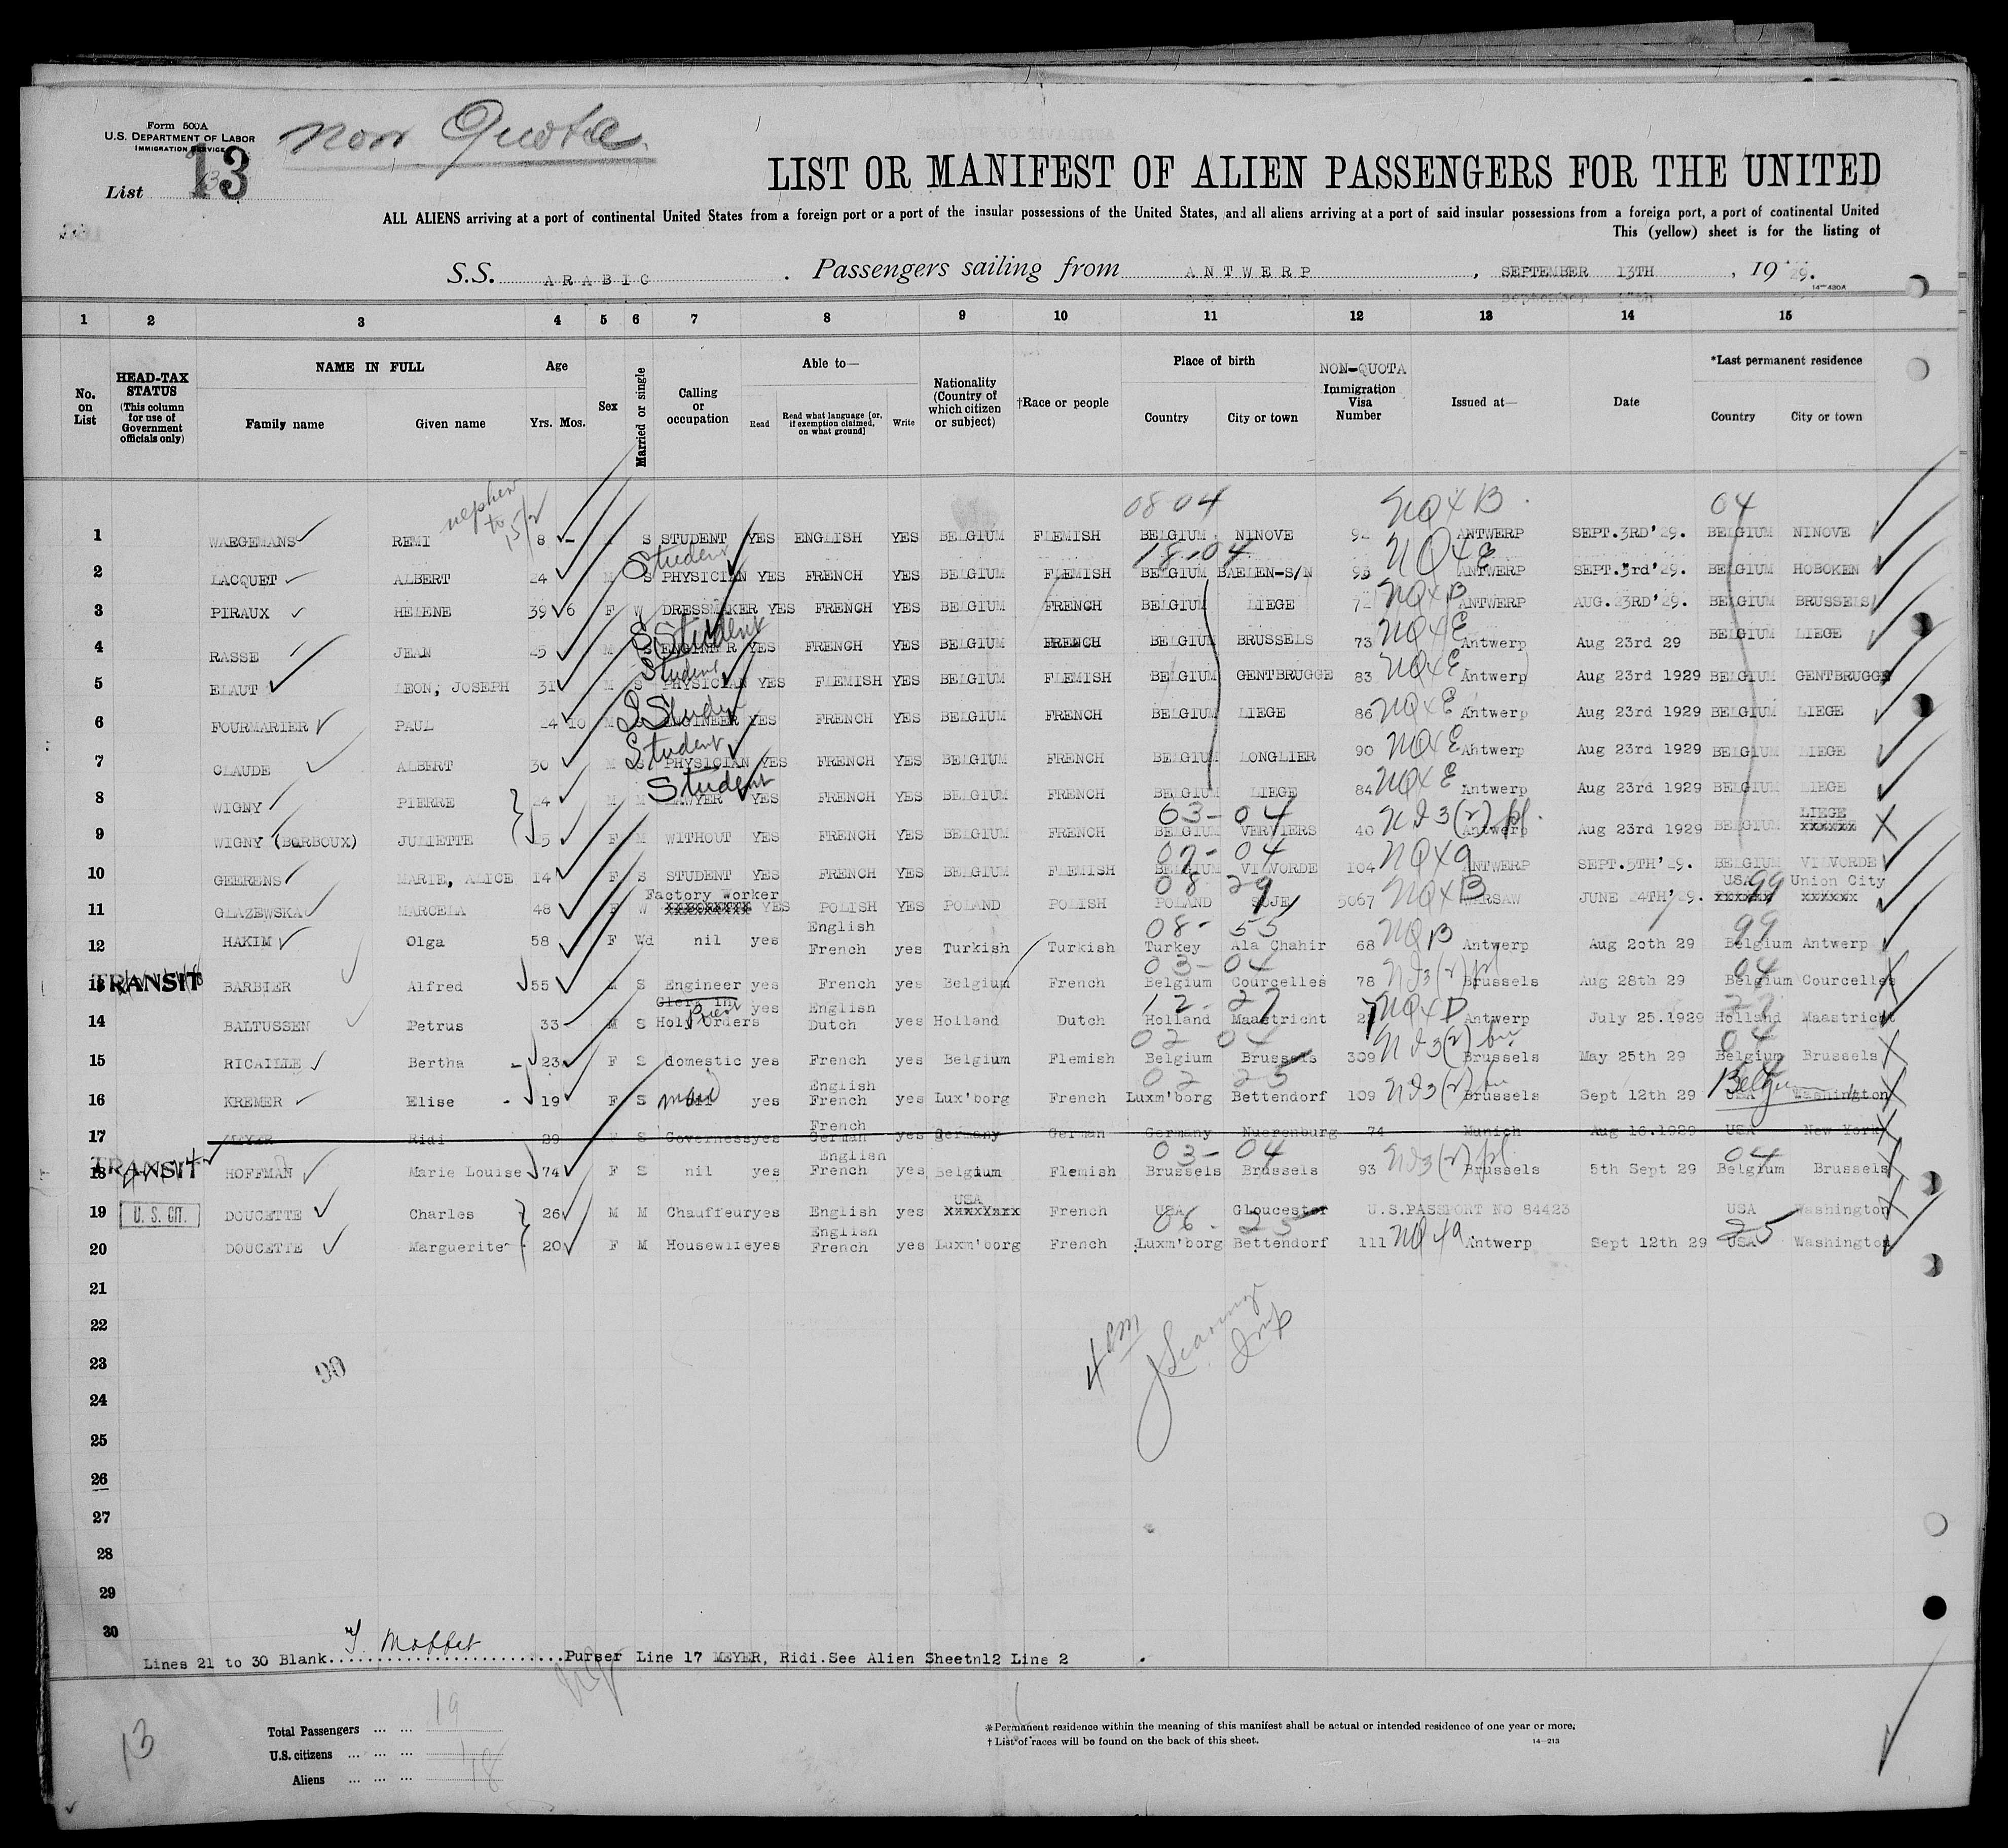 Form 500A
U.S. DEPARTMENT OF LABOR
IMMIGRATION SERVICE
Non Quota
List 13
LIST OR MANIFEST OF ALIEN PASSENGERS FOR THE UNITED
ALL ALIENS arriving at a port of continental United States from a foreign port or a port of the insular possessions of the United States, and all aliens arriving at a port of said insular possessions from a foreign port, a port of continental United
This (yellow) sheet is for the listing of
S.S. ARABIC. Passengers sailing from ANTWERP, SEPTEMBER 13TH, 1929.
14-430A
1 2 3 4 5 6 7 8 9 10 11 12 13 14 15
No. on List
HEAD-TAX STATUS (This column for use of Government officials only)
NAME IN FULL Family name Given name
Age Yrs. Mos.
Sex
Married or single
Calling or occupation
Able to— Read Read what language [or, if exemption claimed, on what ground] Write
Nationality (Country of which citizen or subject)
†Race or people
Place of birth Country City or town
NON-QUOTA Immigration Visa Number
Issued at—
Date
*Last permanent residence Country City or town
nephew to 15/2
08 04 NQ4B 04
1 WAEGEMANS REMI 8 - S STUDENT YES ENGLISH YES BELGIUM FLEMISH BELGIUM NINOVE ANTWERP SEPT.3RD'29. BELGIUM NINOVE
Student 18-04 NQ4E
2 LACQUET ALBERT 24 M S PHYSICIAN YES FRENCH YES BELGIUM FLEMISH BELGIUM BAELEN-S/N ANTWERP SEPT.3rd'29. BELGIUM HOBOKEN
3 PIRAUX HELENE 39 6 F W DRESSMAKER YES FRENCH YES BELGIUM FRENCH BELGIUM LIEGE 72 NQ4B ANTWERP AUG.23RD'29. BELGIUM BRUSSELS
Student
4 RASSE JEAN 25 M S ENGINEER YES FRENCH YES BELGIUM FRENCH BELGIUM BRUSSELS 73 NQ4E Antwerp Aug 23rd 29 BELGIUM LIEGE
Student
5 ELAUT LEON, JOSEPH 31 M S PHYSICIAN YES FLEMISH YES BELGIUM FLEMISH BELGIUM GENTBRUGGE 83 NQ4E Antwerp Aug 23rd 1929 BELGIUM GENTBRUGGE
Student
6 FOURMARIER PAUL 24 10 M S ENGINEER YES FRENCH YES BELGIUM FRENCH BELGIUM LIEGE 86 NQ4E Antwerp Aug 23rd 1929 BELGIUM LIEGE
Student
7 CLAUDE ALBERT 30 M S PHYSICIAN YES FRENCH YES BELGIUM FRENCH BELGIUM LONGLIER 90 NQ4E Antwerp Aug 23rd 1929 BELGIUM LIEGE
Student
8 WIGNY PIERRE 24 M M LAWYER YES FRENCH YES BELGIUM FRENCH BELGIUM LIEGE 84 NQ4E Antwerp Aug 23rd 1929 BELGIUM LIEGE
03-04 LIEGE
9 WIGNY (BORBOUX) JULIETTE 25 F M WITHOUT YES FRENCH YES BELGIUM FRENCH BELGIUM VERVIERS 40 Antwerp Aug 23rd 1929 BELGIUM xxxxxx
02-04
10 GEERENS MARIE, ALICE 14 F S STUDENT YES FRENCH YES BELGIUM FLEMISH BELGIUM VILVORDE 104 NQ4a ANTWERP SEPT.5TH'29. BELGIUM VILVORDE
Factory worker 08 29 USA 99 Union City
11 GLAZEWSKA MARCELA 48 F W xxxxxxxxx YES POLISH YES POLAND POLISH POLAND 5067 NQ4B WARSAW JUNE 24TH'29. xxxxxx xxxxxx
English 08-55 99
12 HAKIM Olga 58 F Wd nil yes French yes Turkish Turkish Turkey Ala Chahir 68 NQB Antwerp Aug 20th 29 Belgium Antwerp
03-04 04
TRANSIT 13 BARBIER Alfred 55 M S Engineer yes French yes Belgium French Belgium Courcelles 78 Brussels Aug 28th 29 Belgium Courcelles
Priest English 12-27 27
14 BALTUSSEN Petrus 33 M S Holy Orders yes Dutch yes Holland Dutch Holland Maastricht NQ4D Antwerp July 25.1929 Holland Maastricht
02 04 04
15 RICAILLE Bertha 23 F S domestic yes French yes Belgium Flemish Belgium Brussels 309 Brussels May 25th 29 Belgium Brussels
English 02 25 Belgium
16 KREMER Elise 19 F S maid yes French yes Lux'borg French Luxm'borg Bettendorf 109 Brussels Sept 12th 29 USA Washington
French
17 MEYER Ridi 29 F S Governess yes German yes Germany German Germany Nuerenburg 74 Munich Aug 16.1929 USA New York
English 03-04 04
TRANSIT 18 HOFFMAN Marie Louise 74 F S nil yes French yes Belgium Flemish Brussels Brussels 93 Brussels 5th Sept 29 Belgium Brussels
USA
19 U. S. CIT. DOUCETTE Charles 26 M M Chauffeur yes English yes xxxxxxxx French USA Gloucester U.S.PASSPORT NO 84423 USA Washington
English 06-25 25
20 DOUCETTE Marguerite 20 F M Housewife yes French yes Luxm'borg French Luxm'borg Bettendorf 111 NQ4a Antwerp Sept 12th 29 USA Washington
21
22
23
90
24
25
26
27
28
29
30
Lines 21 to 30 Blank. T. Moffet Purser Line 17 MEYER, Ridi.See Alien Sheetn12 Line 2
13
Total Passengers ... ... 19
U.S. citizens ... ... ... 1
Aliens ... ... ... 18
*Permanent residence within the meaning of this manifest shall be actual or intended residence of one year or more.
† List of races will be found on the back of this sheet.
14-213